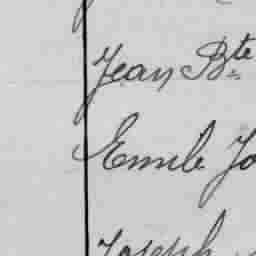 Jean Bte
Emile Jo
Joseph